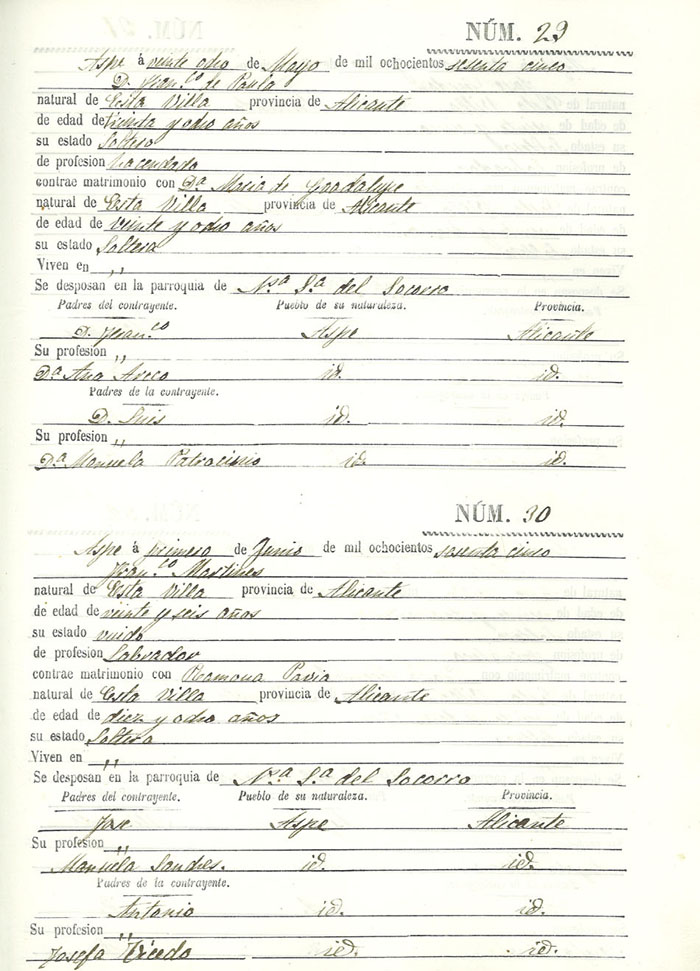 NÚM. 29
Aspe á veinte ocho de Mayo de mil ochocientos sesenta cinco
D. Fran.co de Paula
natural de Esta Villa provincia de Alicante
de edad de treinta y ocho años
su estado Soltero
de profesion hacendado
contrae matrimonio con Da. Maria de Guadalupe
natural de Esta Villa provincia de Alicante
de edad de veinte y ocho años
su estado Soltera
Viven en ,,
Se desposan en la parroquia de Nsa Sa del Socorro
Padres del contrayente. Pueblo de su naturaleza. Provincia.
D. Fran.co Aspe Alicante
Su profesion ,,
Da Ana id. id.
Padres de la contrayente.
D. Luis id. id.
Su profesion ,,
Da Manuela Patrocinio id. id.
NÚM. 30
Aspe á primero de Junio de mil ochocientos sesenta cinco
Fran.co Martines
natural de Esta Villa provincia de Alicante
de edad de veinte y seis años
su estado viudo
de profesion Labrador
contrae matrimonio con Ramona Pavia
natural de Esta Villa provincia de Alicante
de edad de diez y ocho años
su estado Soltera
Viven en ,,
Se desposan en la parroquia de Nsa Sa del Socorro
Padres del contrayente. Pueblo de su naturaleza. Provincia.
Jose Aspe Alicante
Su profesion ,,
Manuela id. id.
Padres de la contrayente.
Antonio id. id.
Su profesion ,,
Josefa id. id.